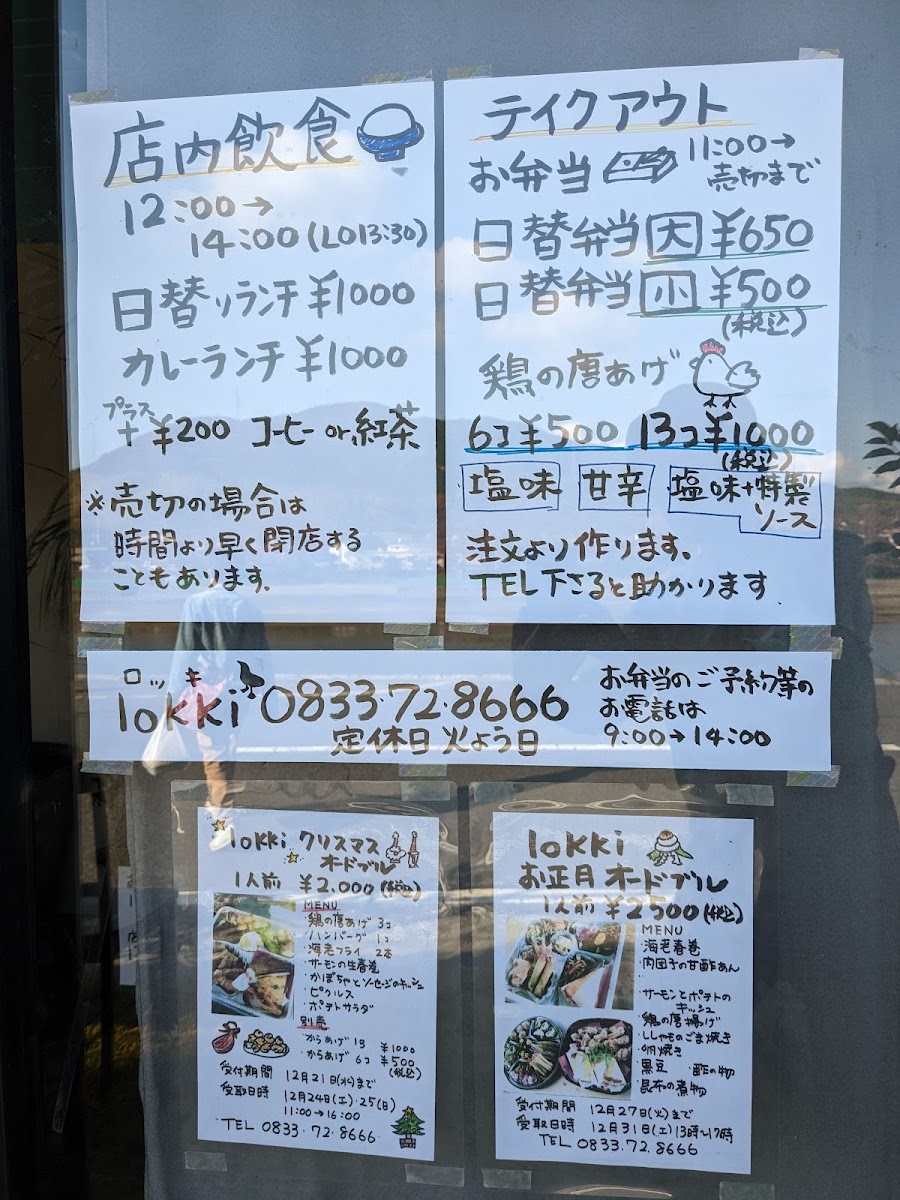 店内飲食
12:00→
14:00(LO13:30)
日替りランチ ¥1000
カレーランチ ¥1000
プラス
+ ¥200 コーヒー or 紅茶
※売切の場合は
時間より早く閉店する
こともあります。
テイクアウト
お弁当 11:00→
売切まで
日替弁当 大 ¥650
日替弁当 小 ¥500
(税込)
鶏の唐あげ
6コ ¥500 13コ ¥1000
(税込)
塩味 甘辛 塩味+特製
ソース
注文より作ります。
TEL下さると助かります
ロッキ
lokki 0833.72.8666
定休日 火よう日
お弁当のご予約等の
お電話は
9:00→14:00
lokki クリスマス
オードブル
1人前 ¥2.000(税込)
MENU
・鶏の唐あげ 3コ
・ハンバーグ 1コ
・海老フライ 2本
・サーモンの生春巻
・かぼちゃとソーセージのキッシュ
・ピクルス
・ポテトサラダ
別売
・からあげ 13 ¥1000
・からあげ 6コ ¥500
(税込)
受付期間 12月21日(水)まで
受取日時 12月24日(土)・25(日)
11:00→16:00
TEL 0833.72.8666
lokki
お正月 オードブル
1人前 ¥2500(税込)
MENU
・海老春巻
・肉団子の甘酢あん
・サーモンとポテトの
キッシュ
・鶏の唐揚げ
・ししゃものごま焼き
・卵焼き
・黒豆 ・酢の物
・昆布の煮物
受付期間 12月27日(火)まで
受取日時 12月31日(土)13時~17時
TEL 0833.72.8666